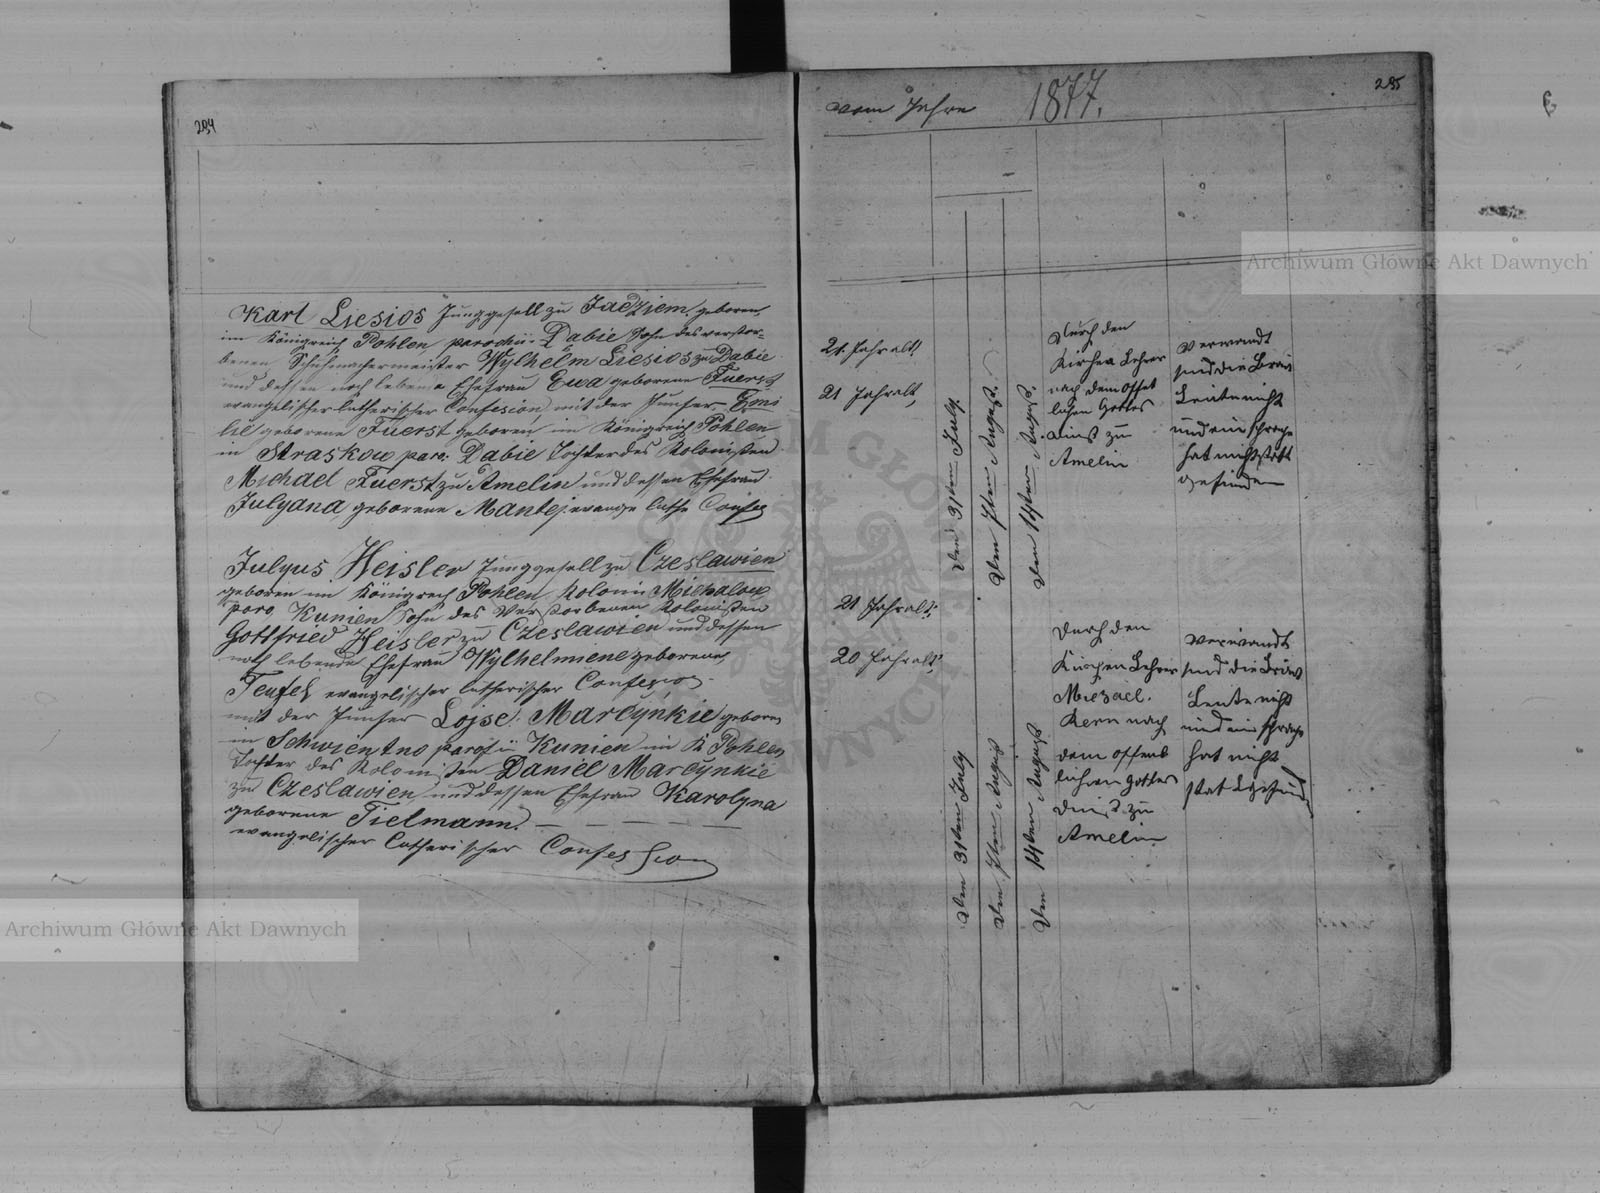 284
Karl Liesios Junggesell zu Jadziem, geboren,
im Königreich Pohlen parochii Dabie Sohn des verstor-
benen Schuhmachermeister Wylhelm Liesios zu Dabie
und dessen noch lebende Ehefrau Ewa geborene Fuerst
evangelischer lutherischer Confesion mit der Junfer Emi
lie geborene Fuerst geboren im Königreich Pohlen
in Straskow paro. Dabie Tochter des Kolonisten
Michael Fuerst zu Amelin und dessen Ehefrau
Julyana geborene Mantej evange luthe Confes
Julyus Heisler Junggesell zu Czeslawien
geboren im Königreich Pohlen Kolonii Michalow
paro Kunien Sohn des Verstorbenen Kolonisten
Gottfried Heisler zu Czeslawien und dessen
noch lebende Ehefrau Wylhelmiene geborene
Teufel evangelischer lutherischer Confesion
mit der Junfer Lojse Marcynkie geboren
in Schwientno parofii Kunien im K Pohlen
Tochter des Kolonisten Daniel Marcynkie
zu Czeslawien und dessen Ehefrau Karolyna
geborene Tielmann.
evangelischer Lutherischer Confession
vom Jahre 1877.
285
21. Jahr alt,
21 Jahr alt,
den 31ten July.
den 7ten August.
den 14ten August.
Durch den
Kirchen Lehrer
nach dem offent
lichen Gottes
dinst zu
Amelin
Verwandt
sind die Braut
Leute nicht
und ein sprache
hat nicht statt
gefunden
21 Jahr alt,
20 Jahr alt,
den 31ten July
den 7ten August
den 14ten August
Durch den
Kirchen Lehrer
Miezael.
Kern nach
dem offent
lichen Gottes
dinst zu
Amelin
Verwandt
sind die Braut
Leute nicht
und ein sprache
hat nicht
statt gefund
Archiwum Główne Akt Dawnych
Archiwum Główne Akt Dawnych